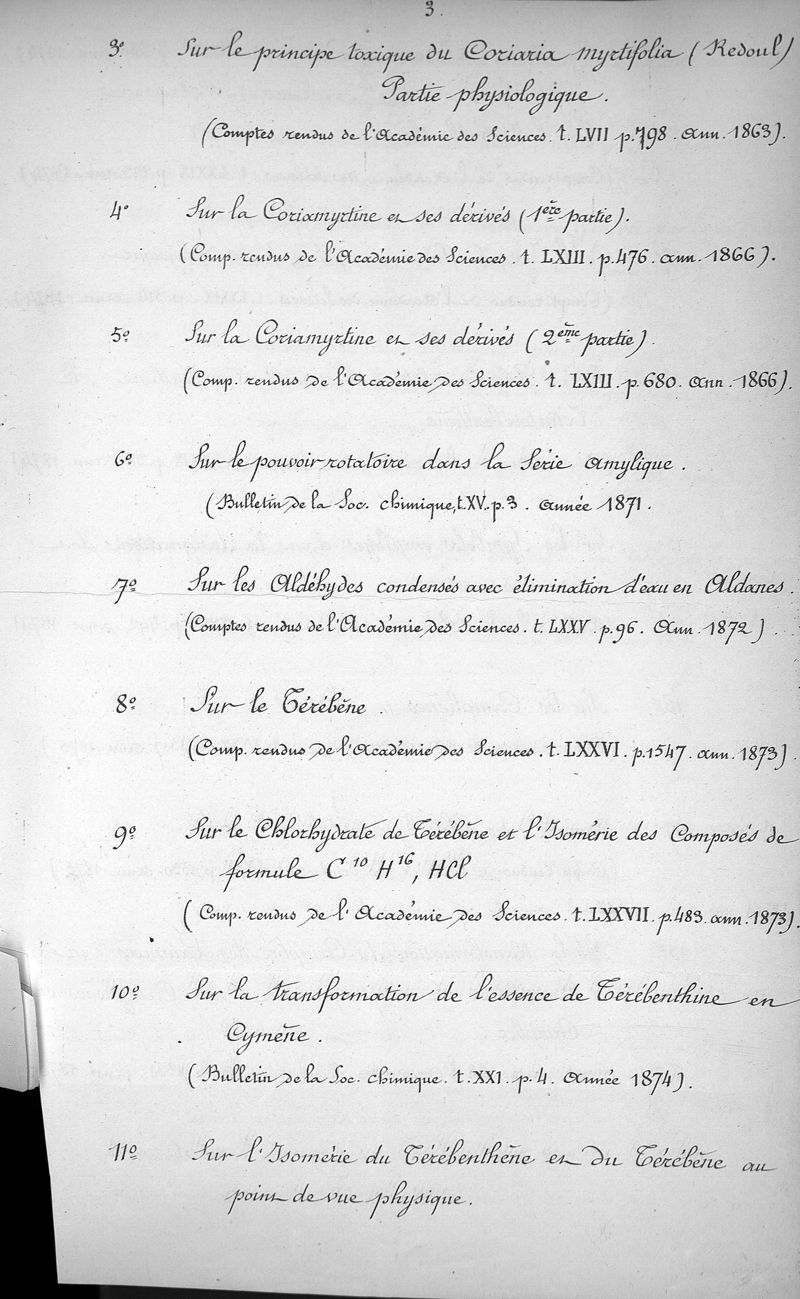 3.
3º Sur le principe toxique du Coriaria myrtifolia (Redoul)
Partie physiologique.
(Comptes rendus de l'Académie des Sciences. t. LVII p. 798. Ann. 1863).
4º Sur la Coriamyrtine et ses dérivés (1ère partie).
(Comp. rendus de l'Académie des Sciences. t. LXIII. p. 476. ann. 1866).
5º Sur la Coriamyrtine et ses dérivés (2ème partie).
(Comp. rendus de l'Académie des Sciences. t. LXIII. p. 680. Ann. 1866).
6º Sur le pouvoir rotatoire dans la Série Amylique.
(Bulletin de la Soc. chimique, t. XV. p. 3. Année 1871.
7º Sur les Aldéhydes condensés avec élimination d'eau en Aldanes.
(Comptes rendus de l'Académie des Sciences. t. LXXV. p. 96. Ann. 1872).
8º Sur le Térébène.
(Comp. rendus de l'Académie des Sciences. t. LXXVI. p. 1547. ann. 1873).
9º Sur le Chlorhydrate de Térébène et l'Isomérie des Composés de
formule C¹⁰ H¹⁶, HCl
(Comp. rendus de l'Académie des Sciences. t. LXXVII. p. 483. ann. 1873).
10º Sur la transformation de l'essence de Térébenthine en
Cymène.
(Bulletin de la Soc. chimique. t. XXI. p. 4. Année 1874).
11º Sur l'Isomérie du Térébenthène et du Térébène au
point de vue physique.